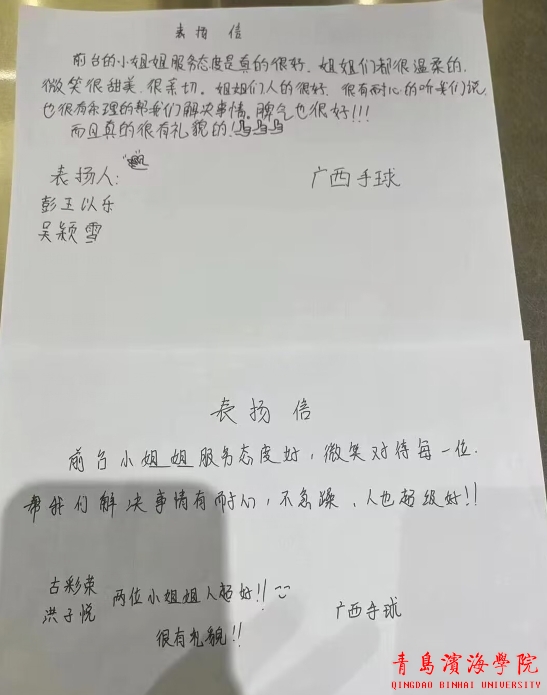 表扬信
前台的小姐姐服务态度是真的很好、姐姐们都很温柔的,
微笑很甜美、很亲切。姐姐们人的很好、很有耐心的听我们说,
也很有条理的帮我们解决事情。脾气也很好!!!
而且真的很有礼貌的!
表扬人:
广西手球
彭王以乐
吴颖雪
表扬信
前台小姐姐服务态度好,微笑对待每一位.
帮我们解决事情有耐心,不急躁、人也超级好!!
古彩荣
洪子悦
两位小姐姐人超好!!
很有礼貌!!
广西手球
青島濱海學院
QINGDAO BINHAI UNIVERSITY